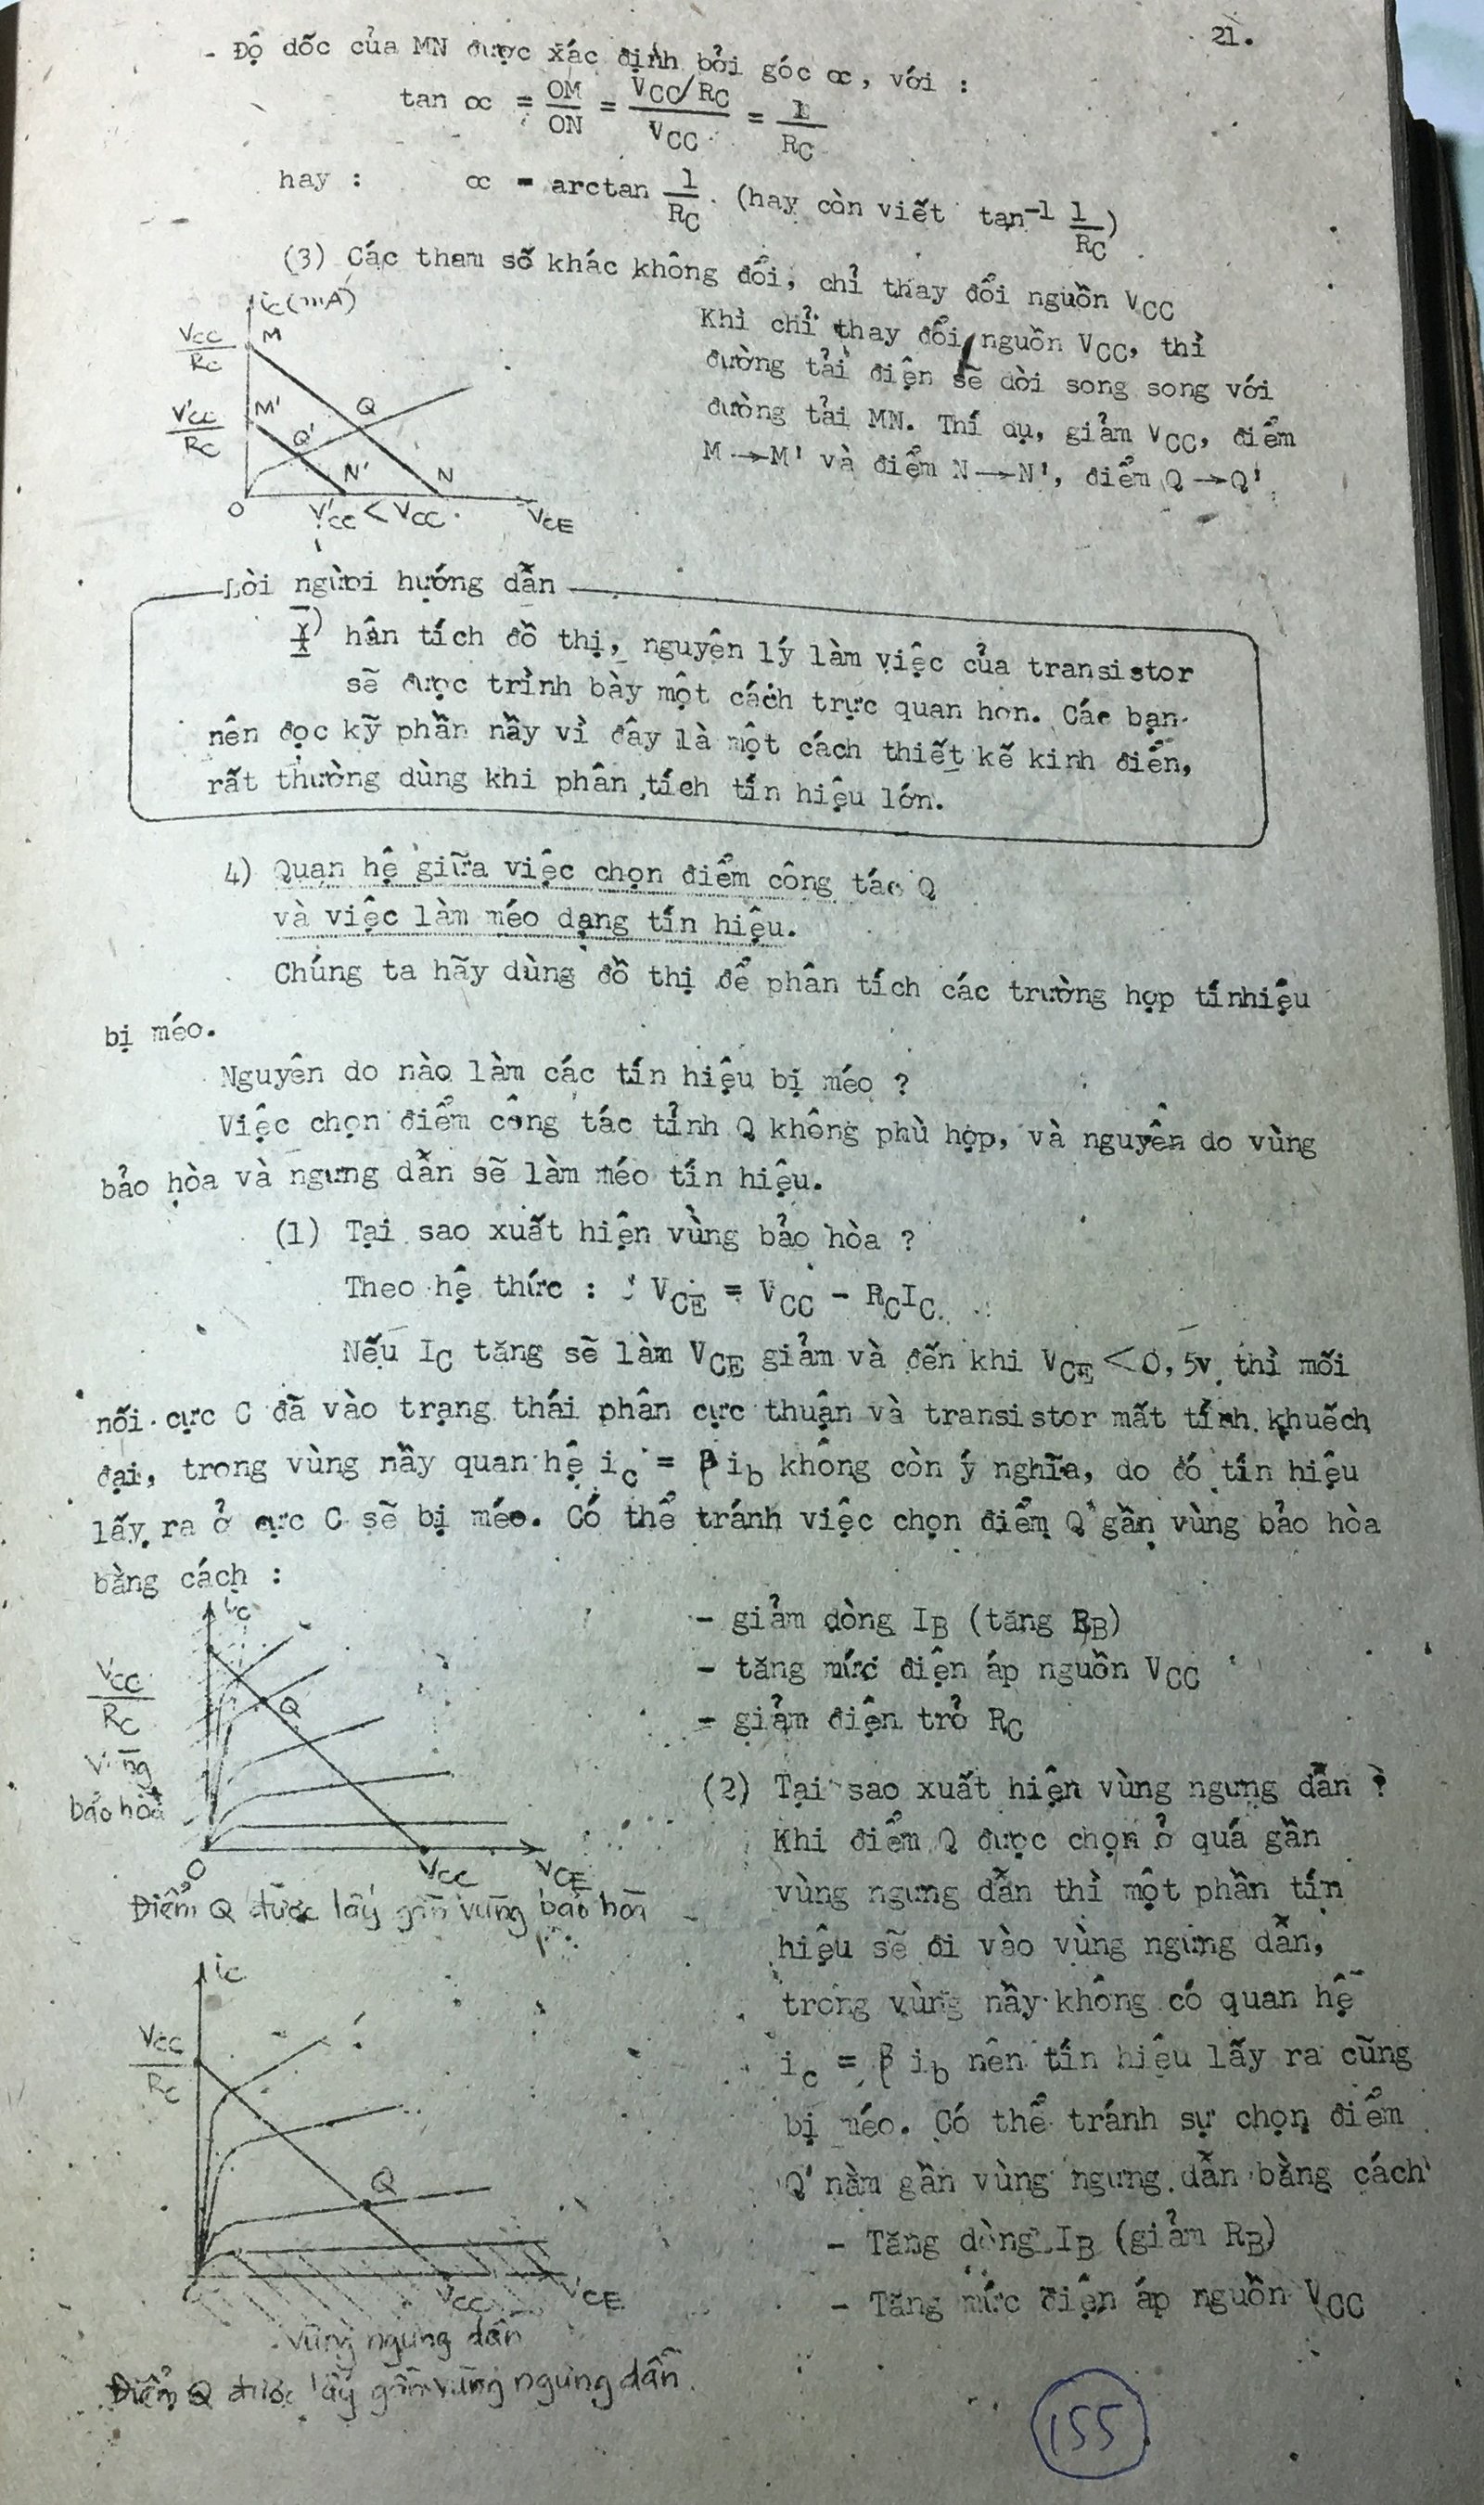 21.
- Độ dốc của MN được xác định bởi góc α, với :
tan α = OM/ON = (VCC/RC)/VCC = 1/RC
hay : α = arctan 1/RC . (hay còn viết tan⁻¹ 1/RC)
(3) Các tham số khác không đổi, chỉ thay đổi nguồn VCC
ic(mA)
VCC/RC
M
V'CC/RC
M'
Q
Q'
N'
N
O
V'CC < VCC
VCE
Khi chỉ thay đổi nguồn VCC, thì
đường tải điện sẽ dời song song với
đường tải MN. Thí dụ, giảm VCC, điểm
M → M' và điểm N → N', điểm Q → Q'
Lời người hướng dẫn
hân tích đồ thị, nguyên lý làm việc của transistor
sẽ được trình bày một cách trực quan hơn. Các bạn
nên đọc kỹ phần nầy vì đây là một cách thiết kế kinh điển,
rất thường dùng khi phân tích tín hiệu lớn.
4) Quan hệ giữa việc chọn điểm công tác Q
và việc làm méo dạng tín hiệu.
Chúng ta hãy dùng đồ thị để phân tích các trường hợp tínhiệu
bị méo.
Nguyên do nào làm các tín hiệu bị méo ?
Việc chọn điểm công tác tỉnh Q không phù hợp, và nguyên do vùng
bảo hòa và ngưng dẫn sẽ làm méo tín hiệu.
(1) Tại sao xuất hiện vùng bảo hòa ?
Theo hệ thức : VCE = VCC - RCIC
Nếu IC tăng sẽ làm VCE giảm và đến khi VCE < 0,5v thì mối
nối cực C đã vào trạng thái phân cực thuận và transistor mất tính khuếch
đại, trong vùng nầy quan hệ ic = β ib không còn ý nghĩa, do đó tín hiệu
lấy ra ở cực C sẽ bị méo. Có thể tránh việc chọn điểm Q gần vùng bảo hòa
bằng cách :
ic
VCC/RC
Q
Vùng
bảo hòa
O
VCC
VCE
Điểm Q được lấy gần vùng bảo hòa
- giảm dòng IB (tăng RB)
- tăng mức điện áp nguồn VCC
- giảm điện trở RC
(2) Tại sao xuất hiện vùng ngưng dẫn ?
Khi điểm Q được chọn ở quá gần
vùng ngưng dẫn thì một phần tín
hiệu sẽ đi vào vùng ngưng dẫn,
trong vùng nầy không có quan hệ
ic = β ib nên tín hiệu lấy ra cũng
bị méo. Có thể tránh sự chọn điểm
Q nằm gần vùng ngưng dẫn bằng cách
- Tăng dòng IB (giảm RB)
- Tăng mức điện áp nguồn VCC
ic
VCC/RC
Q
VCC
VCE
Vùng ngưng dẫn
Điểm Q được lấy gần vùng ngưng dẫn.
155